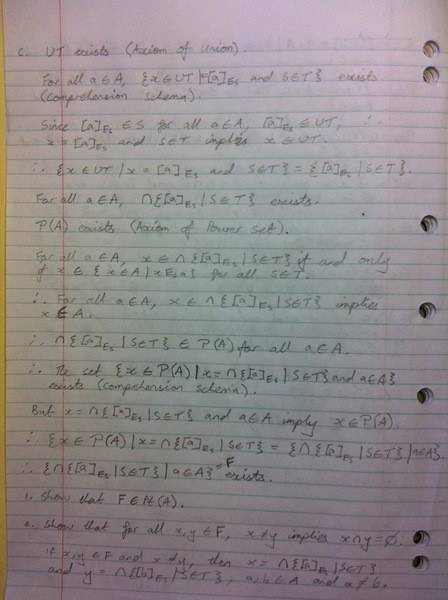 c. UT exists (Axiom of Union).
For all a∈A, {x∈UT | x=[a]_{E_S} and S∈T} exists
(Comprehension schema).
Since [a]_{E_S} ∈ S for all a∈A, [a]_{E_S} ∈ UT, ∴
x = [a]_{E_S} and S∈T implies x∈UT.
∴ {x∈UT | x = [a]_{E_S} and S∈T} = {[a]_{E_S} | S∈T}.
For all a∈A, ∩{[a]_{E_S} | S∈T} exists.
P(A) exists (Axiom of Power set).
For all a∈A, x∈∩{[a]_{E_S} | S∈T} if and only
if x∈{x∈A | xE_Sa} for all S∈T.
∴ For all a∈A, x∈∩{[a]_{E_S} | S∈T} implies
x∈A.
∴ ∩{[a]_{E_S} | S∈T} ∈ P(A) for all a∈A.
∴ The set {x∈P(A) | x=∩{[a]_{E_S} | S∈T} and a∈A}
exists (comprehension schema).
But x=∩{[a]_{E_S} | S∈T} and a∈A imply x∈P(A).
∴ {x∈P(A) | x=∩{[a]_{E_S} | S∈T} = {∩{[a]_{E_S} | S∈T} | a∈A}.
∴ {∩{[a]_{E_S} | S∈T} | a∈A} = F exists.
1. Show that F∈Pt(A).
a. Show that for all x,y∈F, x≠y implies x∩y=∅.
If x,y∈F and x≠y, then x = ∩{[a]_{E_S} | S∈T}
and y = ∩{[b]_{E_S} | S∈T}, a,b∈A and a≠b.